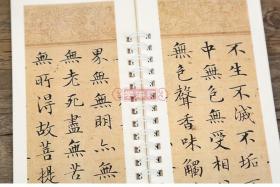 不生不滅不垢不
中無色無受相
無色聲香味觸
界無無明亦無
無老死盡無苦
無所得故菩提